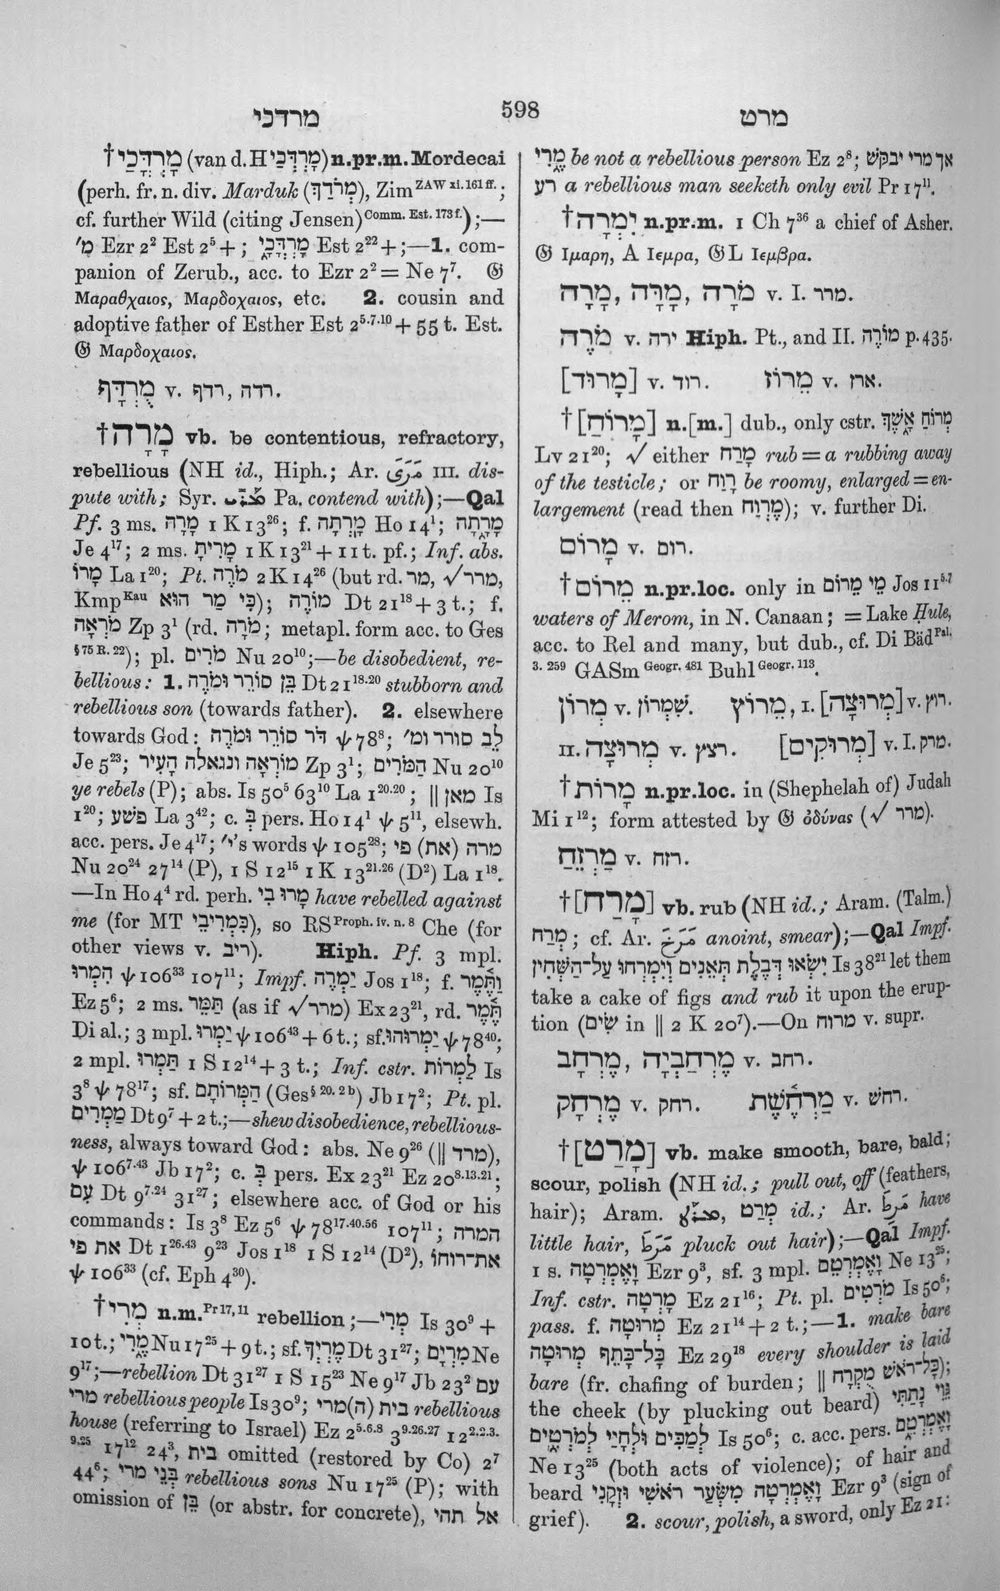 מרדכי
598
מרט
†מָרְדֳּכַי (van d. H מָרְדְּכַי) n.pr.m. Mordecai
(perh. fr. n. div. Marduk (מְרֹדַךְ), Zim ZAW xi. 161 ff.;
cf. further Wild (citing Jensen) Comm. Est. 173 f.);—
מ׳ Ezr 2² Est 2⁵ + ; מָרְדֳּכָי Est 2²² + ;—1. com-
panion of Zerub., acc. to Ezr 2² = Ne 7⁷. 𝔊
Μαραθχαιος, Μαρδοχαιος, etc. 2. cousin and
adoptive father of Esther Est 2⁵·⁷·¹⁰ + 55 t. Est.
𝔊 Μαρδοχαιος.
מֻרְדָּף v. רדה, רדף.
†מָרָה vb. be contentious, refractory,
rebellious (NH id., Hiph.; Ar. مَرَى III. dis-
pute with; Syr. Pa. contend with);—Qal
Pf. 3 ms. מָרָה 1 K 13²⁶; f. מָרְתָה Ho 14¹; מָרָתָה
Je 4¹⁷; 2 ms. מָרִיתָ 1 K 13²¹ + 11 t. pf.; Inf. abs.
מָרוֹ La 1²⁰; Pt. מֹרֶה 2 K 14²⁶ (but rd. מר, √מרר,
Kmp Kau כִּי מַר הוּא); מוֹרֶה Dt 21¹⁸ + 3 t.; f.
מֹרְאָה Zp 3¹ (rd. מֹרָה; metapl. form acc. to Ges
§ 75 R. 22); pl. מֹרִים Nu 20¹⁰;—be disobedient, re-
bellious: 1. בֵּן סוֹרֵר וּמֹרֶה Dt 21¹⁸·²⁰ stubborn and
rebellious son (towards father). 2. elsewhere
towards God: דּוֹר סוֹרֵר וּמֹרֶה ψ 78⁸; לֵב סורר ומ׳
Je 5²³; מוֹרְאָה ונגאלה הָעִיר Zp 3¹; הַמֹּרִים Nu 20¹⁰
ye rebels (P); abs. Is 50⁵ 63¹⁰ La 1²⁰·²⁰; ‖ מאן Is
1²⁰; פשׁע La 3⁴²; c. בְּ pers. Ho 14¹ ψ 5¹¹, elsewh.
acc. pers. Je 4¹⁷; י׳'s words ψ 105²⁸; מרה (את) פי
Nu 20²⁴ 27¹⁴ (P), 1 S 12¹⁵ 1 K 13²¹·²⁶ (D²) La 1¹⁸.
—In Ho 4⁴ rd. perh. מָרוּ בִי have rebelled against
me (for MT כִּמְרִיבֵי), so RS Proph. iv. n. 8 Che (for
other views v. ריב). Hiph. Pf. 3 mpl.
הִמְרוּ ψ 106³³ 107¹¹; Impf. יַמְרֶה Jos 1¹⁸; f. וַתֶּמֶר
Ez 5⁶; 2 ms. תַּמֵּר (as if √מרר) Ex 23²¹, rd. תֶּמֶר
Di al.; 3 mpl. יַמְרוּ ψ 106⁴³ + 6 t.; sf. יַמְרוּהוּ ψ 78⁴⁰;
2 mpl. תַּמְרוּ 1 S 12¹⁴ + 3 t.; Inf. cstr. לַמְרוֹת Is
3⁸ ψ 78¹⁷; sf. הַמְּרוֹתָם (Ges § 20. 2 b) Jb 17²; Pt. pl.
מַמְרִים Dt 9⁷ + 2 t.;—shew disobedience, rebellious-
ness, always toward God: abs. Ne 9²⁶ (‖ מרד),
ψ 106⁷·⁴³ Jb 17²; c. בְּ pers. Ex 23²¹ Ez 20⁸·¹³·²¹;
עִם Dt 9⁷·²⁴ 31²⁷; elsewhere acc. of God or his
commands: Is 3⁸ Ez 5⁶ ψ 78¹⁷·⁴⁰·⁵⁶ 107¹¹; המרה
את פי Dt 1²⁶·⁴³ 9²³ Jos 1¹⁸ 1 S 12¹⁴ (D²), את־רוחו
ψ 106³³ (cf. Eph 4³⁰).
†מְרִי n.m. Pr 17, 11 rebellion;—מְרִי Is 30⁹ +
10 t.; מֶרִי Nu 17²⁵ + 9 t.; sf. מֶרְיְךָ Dt 31²⁷; מִרְיָם Ne
9¹⁷;—rebellion Dt 31²⁷ 1 S 15²³ Ne 9¹⁷ Jb 23² עַם
מרי rebellious people Is 30⁹; בית (ה)מרי rebellious
house (referring to Israel) Ez 2⁵·⁶·⁸ 3⁹·²⁶·²⁷ 12²·²·³·
⁹·²⁵ 17¹² 24³, בית omitted (restored by Co) 2⁷
44⁶; בְּנֵי מרי rebellious sons Nu 17²⁵ (P); with
omission of בֵּן (or abstr. for concrete), אל תהי
מֶרִי be not a rebellious person Ez 2⁸; אך מרי יבקשׁ
רע a rebellious man seeketh only evil Pr 17¹¹.
†יִמְרָה n.pr.m. 1 Ch 7³⁶ a chief of Asher.
𝔊 Ιμαρη, A Ιεμρα, 𝔊L Ιεμβρα.
מָרָה, מָרָּה, מֹרָה v. I. מרר.
מֹרֶה v. ירה Hiph. Pt., and II. מוֹרֶה p. 435.
[מָרוּד] v. רוד. מֵרוֹז v. ארז.
†[מָרוֹחַ] n.[m.] dub., only cstr. מְרוֹחַ אָשֶׁךְ
Lv 21²⁰; √ either מָרַח rub = a rubbing away
of the testicle; or רָוַח be roomy, enlarged = en-
largement (read then מֶרְוַח); v. further Di.
מָרוֹם v. רום.
†מֵרוֹם n.pr.loc. only in מֵי מֵרוֹם Jos 11⁵·⁷
waters of Merom, in N. Canaan; = Lake Ḥule,
acc. to Rel and many, but dub., cf. Di Bäd Pal.
3. 259 GASm Geogr. 481 Buhl Geogr. 113.
מְרוֹן v. שִׁמְרוֹן. מֵרוֹץ, I. [מְרוּצָה] v. רוץ.
II. מְרוּצָה v. רצץ. [מְרוּקִים] v. I. מרק.
†מָרוֹת n.pr.loc. in (Shephelah of) Judah
Mi 1¹²; form attested by 𝔊 ὀδύνας (√ מרר).
מַרְזֵחַ v. רזח.
†[מָרַח] vb. rub (NH id.; Aram. (Talm.)
מְרַח; cf. Ar. مَرَخَ anoint, smear);—Qal Impf.
יִשְׂאוּ דְּבֶלֶת תְּאֵנִים וְיִמְרְחוּ עַל־הַשְּׁחִין Is 38²¹ let them
take a cake of figs and rub it upon the erup-
tion (שִׂים in ‖ 2 K 20⁷).—On מרוח v. supr.
מֶרְחָב, מֶרְחַבְיָה v. רחב.
מֶרְחָק v. רחק. מַרְחֶשֶׁת v. רחשׁ.
†[מָרַט] vb. make smooth, bare, bald;
scour, polish (NH id.; pull out, off (feathers,
hair); Aram. מְרַט id.; Ar. مَرِطَ have
little hair, مَرَطَ pluck out hair);—Qal Impf.
1 s. וָאֶמְרְטָה Ezr 9³, sf. 3 mpl. וָאֶמְרְטֵם Ne 13²⁵;
Inf. cstr. מָרְטָה Ez 21¹⁶; Pt. pl. מֹרְטִים Is 50⁶;
pass. f. מְרוּטָה Ez 21¹⁴ + 2 t.;—1. make bare
כָּל־כָּתֵף מְרוּטָה Ez 29¹⁸ every shoulder is laid
bare (fr. chafing of burden; ‖ כָּל־רֹאשׁ מֻקְרָח);
the cheek (by plucking out beard) גֵּוִי נָתַתִּי
לְמַכִּים וּלְחָיַי לְמֹרְטִים Is 50⁶; c. acc. pers. וָאֶמְרְטֵם
Ne 13²⁵ (both acts of violence); of hair and
beard וָאֶמְרְטָה מִשְּׂעַר רֹאשִׁי וּזְקָנִי Ezr 9³ (sign of
grief). 2. scour, polish, a sword, only Ez 21: